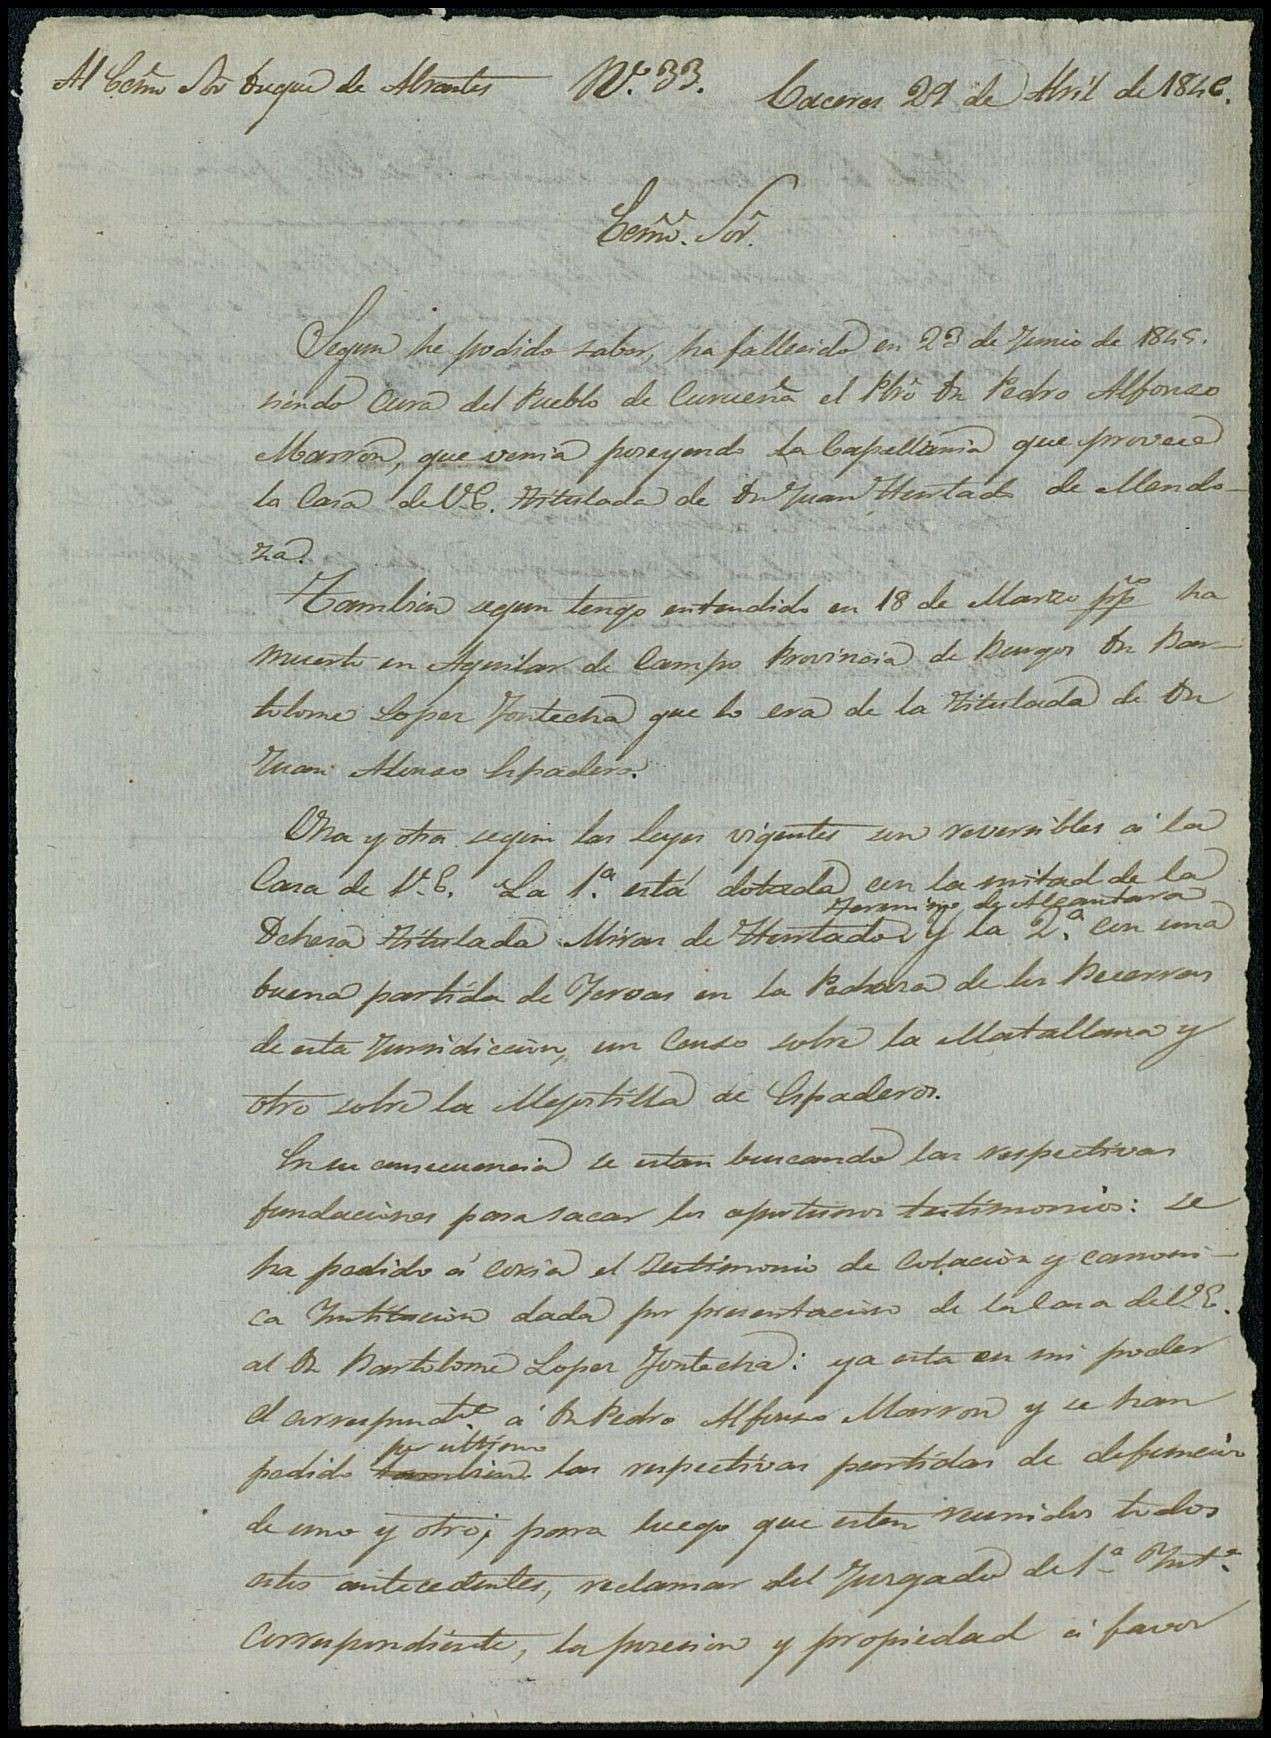 Al Ecmo Sor Duque de Abrantes Nº. 33. Caceres 29 de Abril de 1846.
Ecmo. Sor.
Segun he podido saber, ha fallecido en 23 de Junio de 1845.
siendo Cura del Pueblo de el Pbro Dn Pedro Alfonso
Marron, que venia poseyendo la Capellania que provee
la Casa de V.E. Titulada de Dn Juan Hurtado de Mendo-
za.
Tambien segun tengo entendido en 18 de Marzo ppº ha
muerto en Aguilar de Campo Provincia de Burgos Dn Bar-
tolome Lopez Fontecha que lo era de la Titulada de Dn
Juan Alonso Espadero.
Una y otra segun las leyes vigentes son reversibles á la
Casa de V.E. La 1.ª está dotada con la mitad de la
termino de Alcantara
Dehesa Titulada Miras de Hurtado y la 2.ª con una
buena partida de Yervas en la Pedrera de los Becerras
de esta Jurisdiccion, un Censo sobre la Matallana y
otro sobre la Mejostilla de Espaderos.
En su consecuencia se estan buscando las respectivas
fundaciones para sacar los oportunos testimonios: se
ha pedido á Coria el Testimonio de Colacion y canoni-
ca Institucion dada por presentacion de la Casa de V.E.
al Dn Bartolome Lopez Fontecha: ya esta en mi poder
el correspondte. á Dn Pedro Alfonso Marron y se han
por ultimo
pedido tambien las respectivas partidas de defuncion
de uno y otro; para luego que esten reunidos todos
estos antecedentes, reclamar del Juzgado de 1ª Instª
correspondiente, la posesion y propiedad á favor